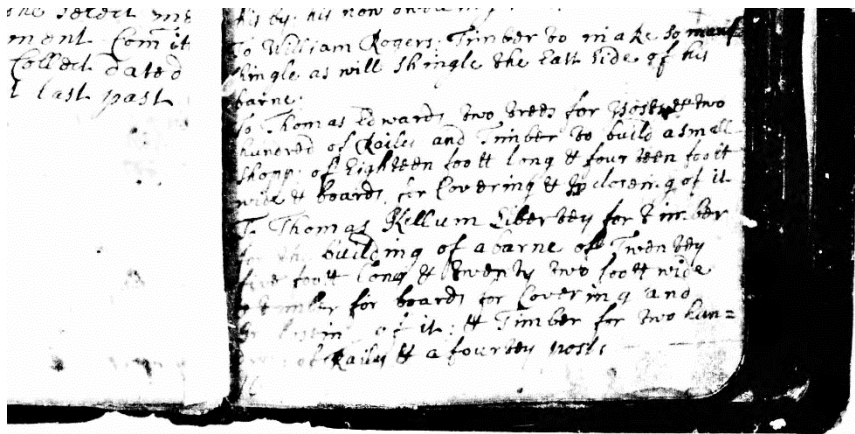 the select me
ment Com̃it
Collect dated
last past
his by: his now
To William Rogers. Timber to make so many
shingle as will shingle the East side of his
barne.
To Thomas Edwards two trees for posts & two
hundred of Railes and Timber to build a small
shopp: of Eighteen foott long & fourteen foott
wide & boards for Covering & Incloseing of it
To Thomas Kellum Libertey for timber
for the building of a barne of Twentey
five foott long & twenty two foott wide
& timber for boards for Covering and
of it: & Timber for two hun=
of Railes & a fourtey posts